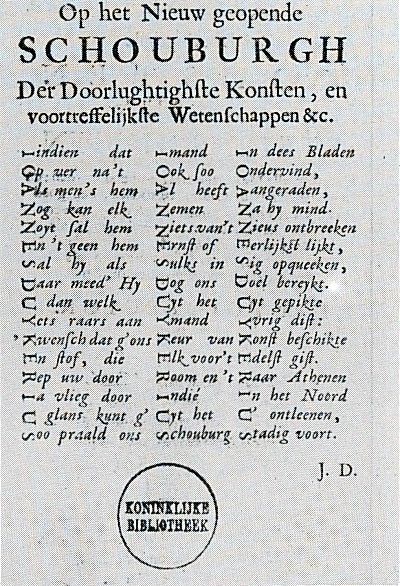 Op het Nieuw geopende
SCHOUBURGH
Der Doorlughtighſte Konſten, en
voortreffelijkſte Wetenſchappen &c.
Indien dat Imand In dees Bladen
Op uer na't Ook ſoo Ondervind,
Als men's hem Al heeft Aangeraden,
Nog kan elk Nemen Na hy mind.
Noyt ſal hem Niets van't Nieus ontbreeken
En 't geen hem Ernſt of Eerlijkſt lijkt,
Sal hy als Sulks in Sig opqueeken,
Daar meed' Hy Dog ons Doel bereykt.
U dan welk Uyt het Uyt gepikte
Yets raars aan Ymand Yvrig diſt:
'Kwenſch dat g'ons Keur van Konſt beſchikte
En ſtof, die Elk voor't Edelſt giſt.
Rep uw door Room en 't Raar Athenen
Ia vlieg door Indië In het Noord
U glans kunt g' Uyt het U' ontleenen,
Soo praald ons Schouburg Stadig voort.
J. D.
KONINKLIJKE
BIBLIOTHEEK